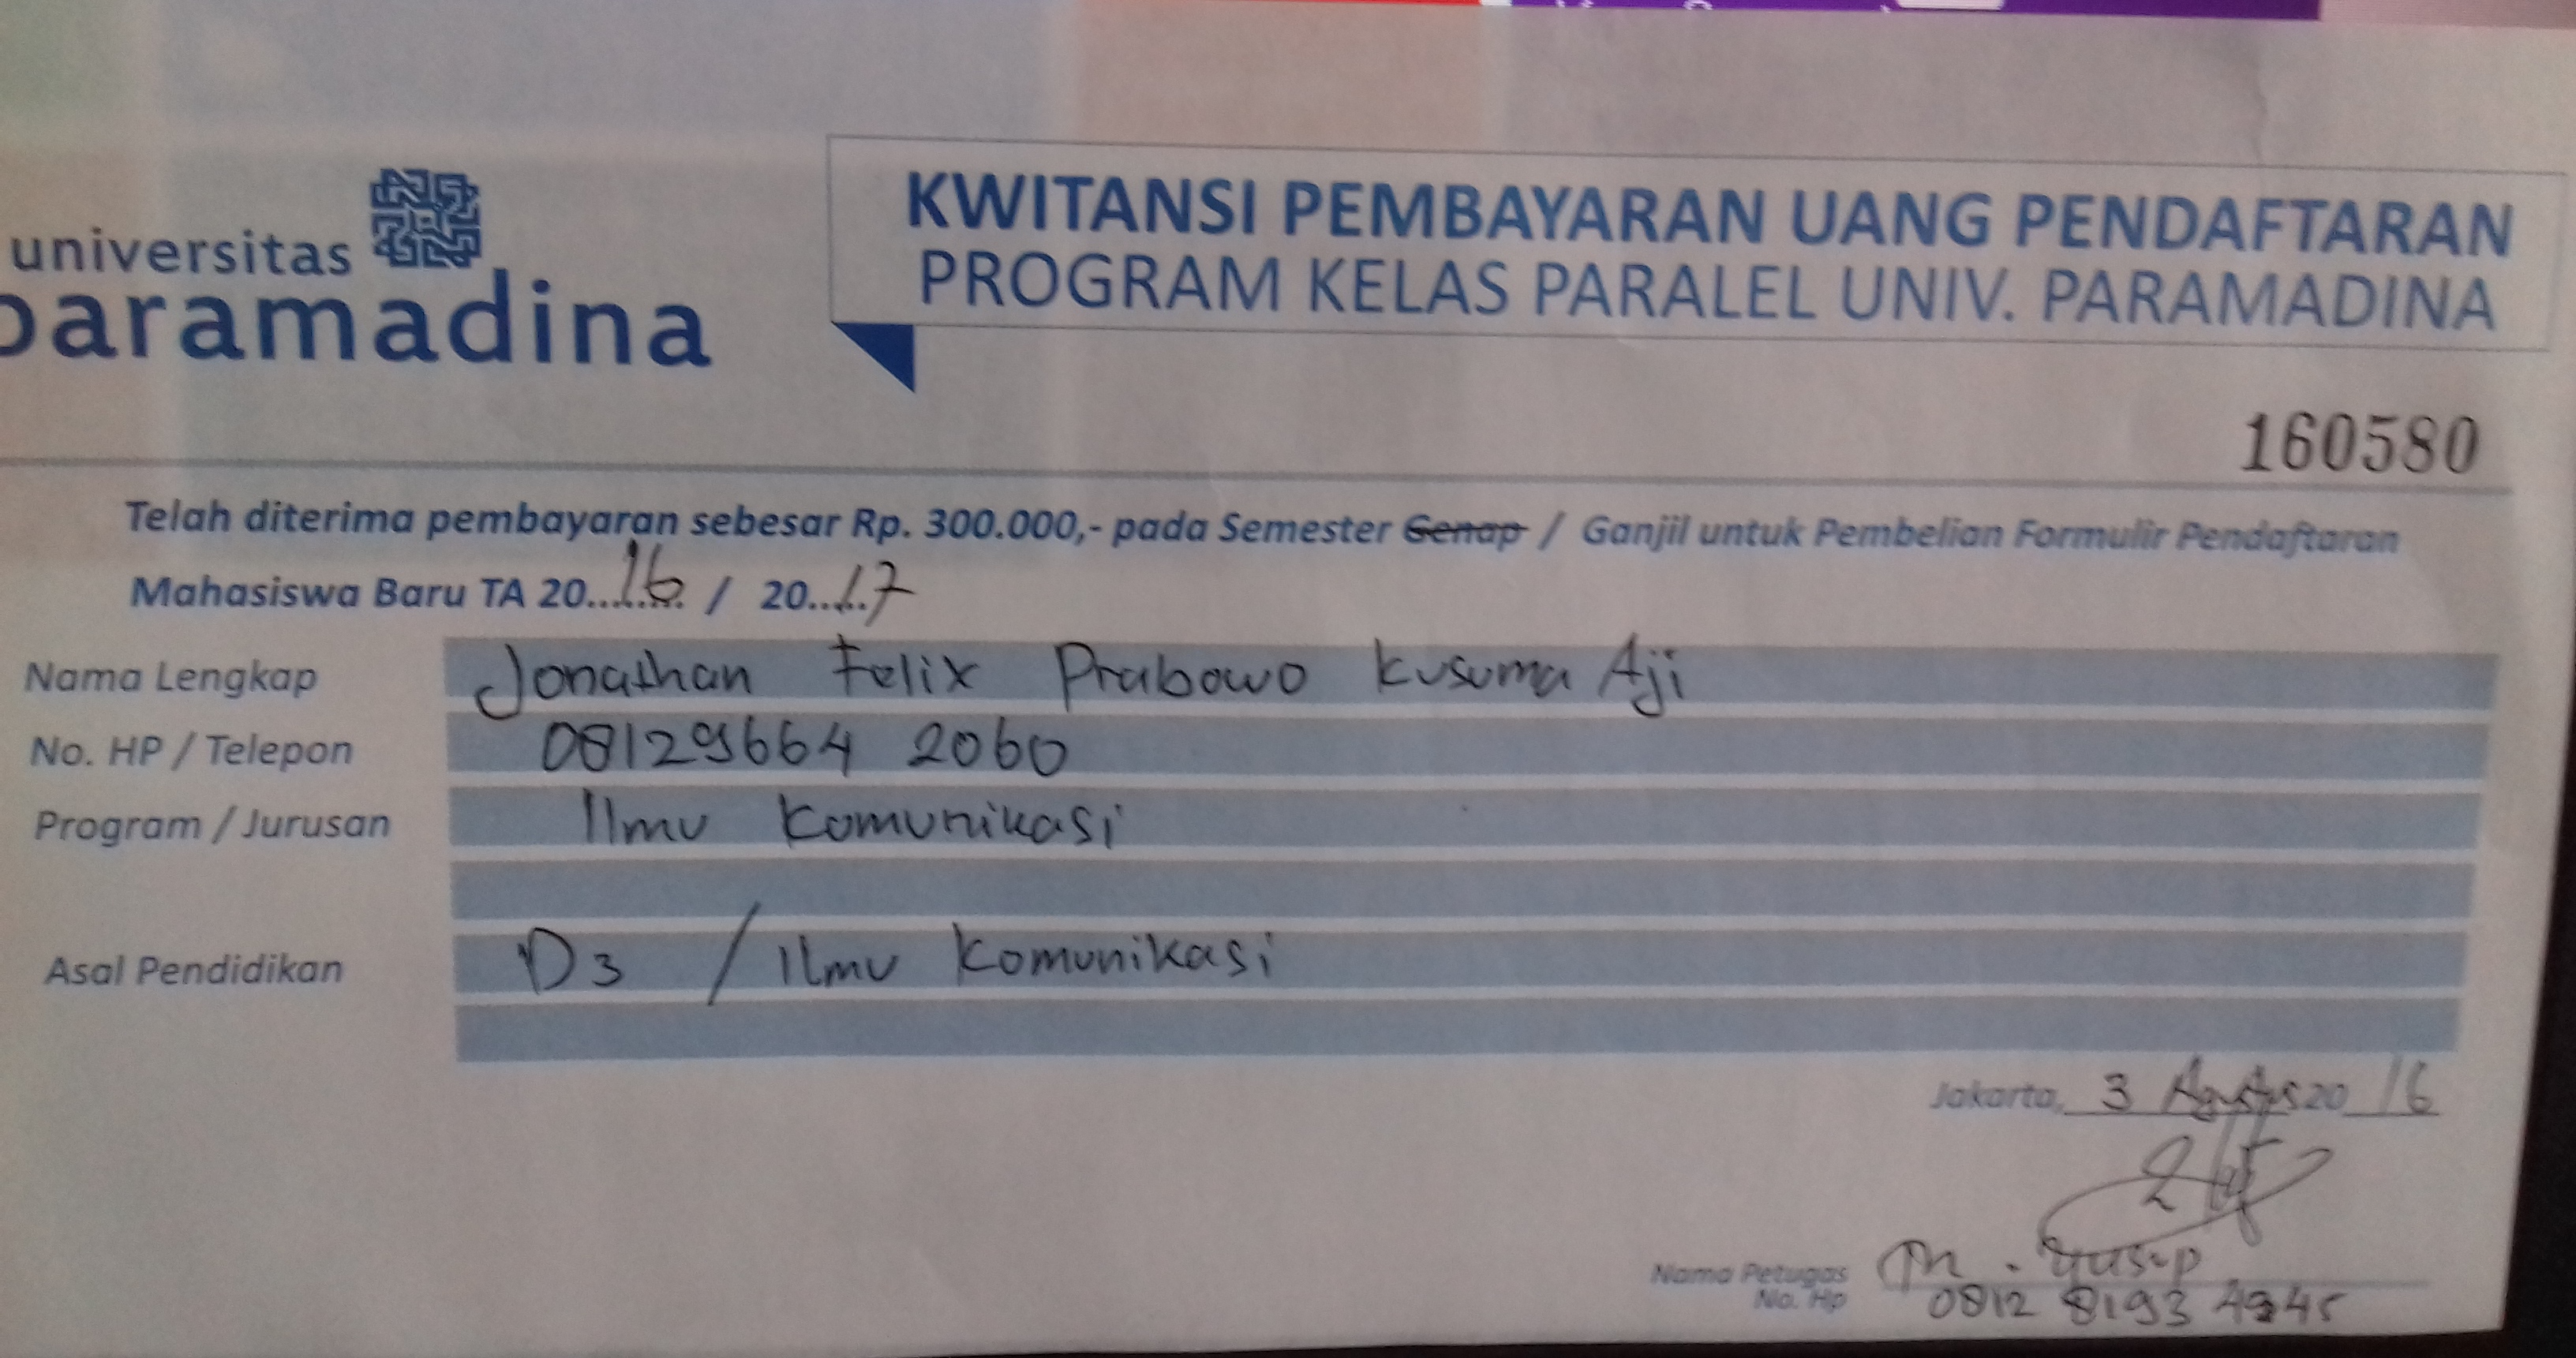 universitas
paramadina
KWITANSI PEMBAYARAN UANG PENDAFTARAN
PROGRAM KELAS PARALEL UNIV. PARAMADINA
160580
Telah diterima pembayaran sebesar Rp. 300.000,- pada Semester Genap / Ganjil untuk Pembelian Formulir Pendaftaran
Mahasiswa Baru TA 20..16.. / 20..17
Nama Lengkap Jonathan Felix Prabowo Kusuma Aji
No. HP / Telepon 08129664 2060
Program / Jurusan Ilmu Komunikasi
Asal Pendidikan D3 / Ilmu Komunikasi
Jakarta, 3 Agustus 20 16
Nama Petugas M. Yusup
No. Hp 0812 8193 4945